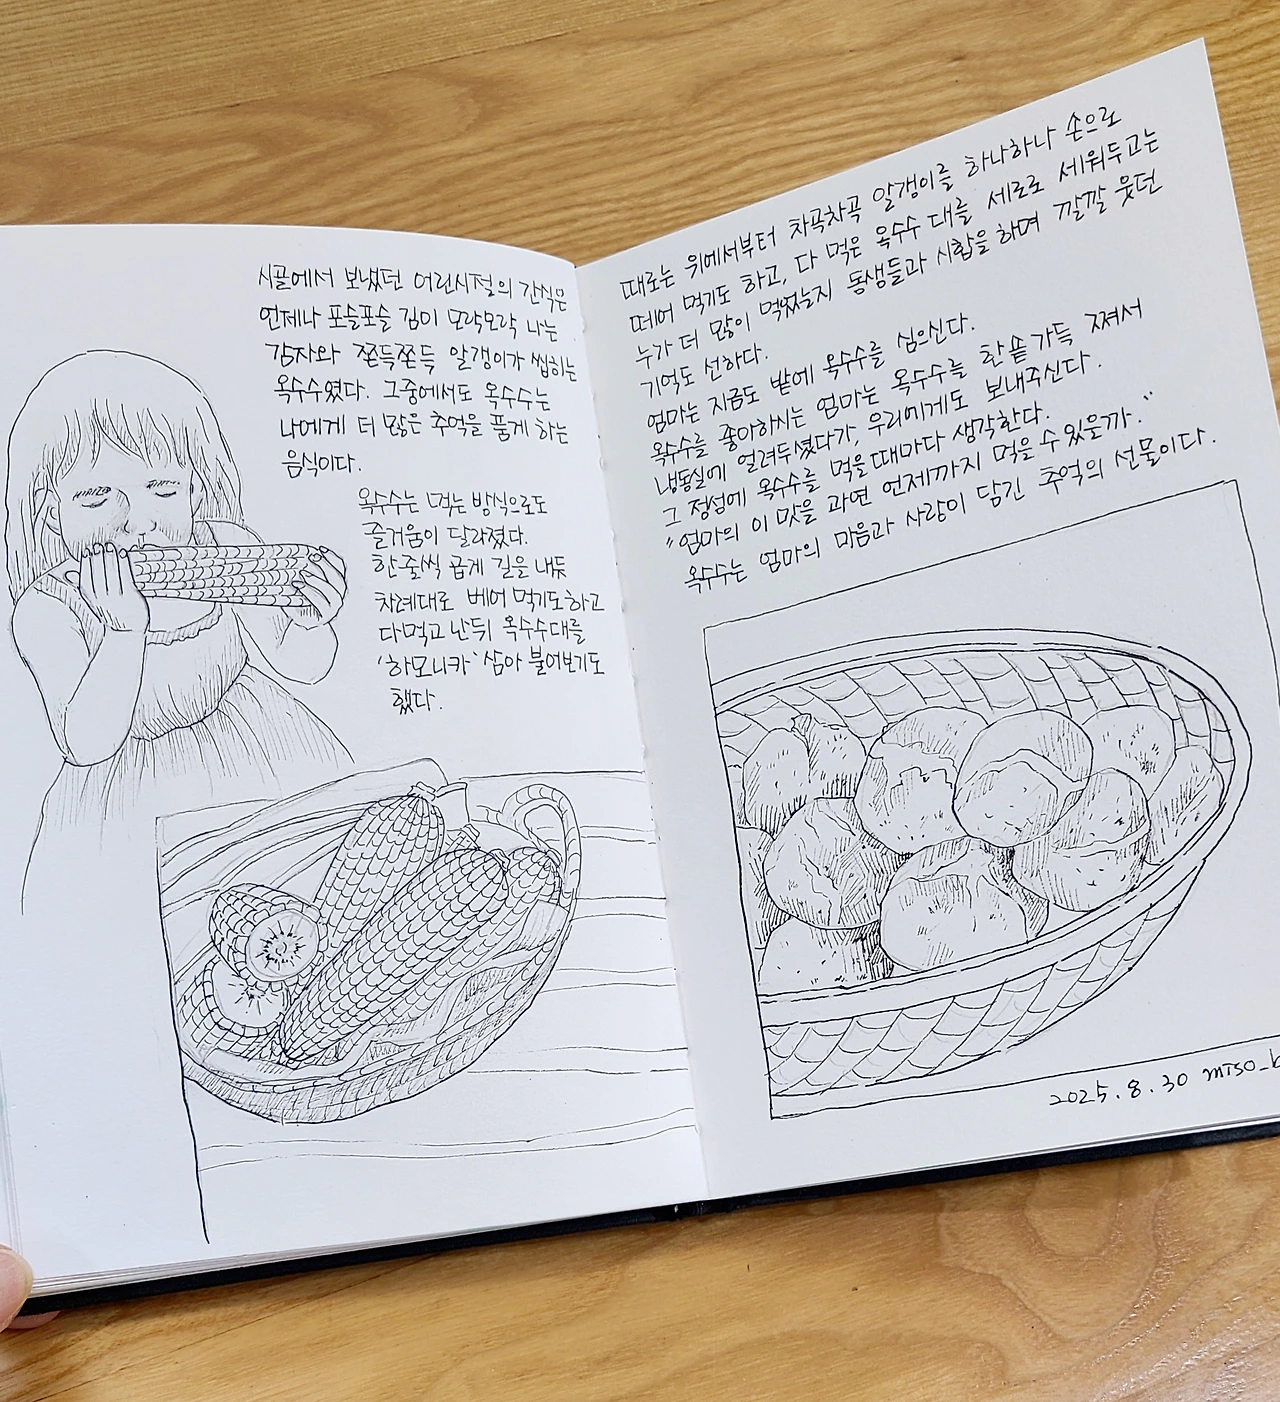 시골에서 보냈던 어린시절의 간식은
언제나 포슬포슬 김이 모락모락 나는
감자와 쫀득쫀득 알갱이가 씹히는
옥수수였다. 그중에서도 옥수수는
나에게 더 많은 추억을 품게 하는
음식이다.
옥수수는 먹는 방식으로도
즐거움이 달라졌다.
한줄씩 곱게 길을 내듯
차례대로 베어 먹기도 하고
다먹고 난 뒤 옥수수대를
'하모니카' 삼아 불어보기도
했다.
때로는 위에서부터 차곡차곡 알갱이를 하나하나 손으로
떼어 먹기도 하고, 다 먹은 옥수수 대를 세로로 세워두고는
누가 더 많이 먹었는지 동생들과 시합을 하며 깔깔 웃던
기억도 선하다.
엄마는 지금도 밭에 옥수수를 심으신다.
옥수수를 좋아하시는 엄마는 옥수수를 한솥 가득 쪄서
냉동실에 얼려두셨다가, 우리에게도 보내주신다.
그 정성에 옥수수를 먹을때마다 생각한다.
"엄마의 이 맛을 과연 언제까지 먹을 수 있을까."
옥수수는 엄마의 마음과 사랑이 담긴 추억의 선물이다.
2025.8.30 miso_k